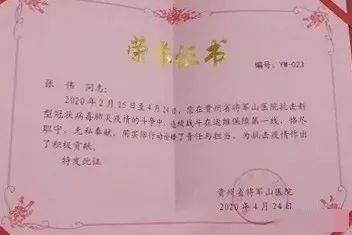 荣誉证书
编号：YM-023
张 伟 同志：
2020年2月16日至4月24日，您在贵州省将军山医院抗击新
型冠状病毒肺炎疫情的斗争中，连续战斗在运维保障第一线，恪尽
职守，无私奉献，用实际行动诠释了责任与担当，为抗击疫情作出
了积极贡献。
特发此证
贵州省将军山医院
2020年4月24日